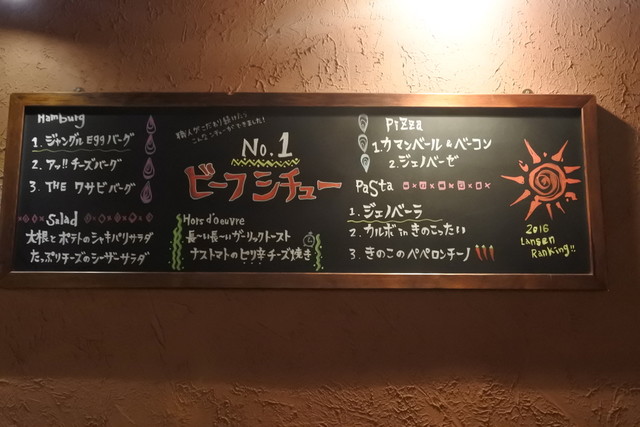 Hamburg
1. ジャングルEggバーグ
2. アッ!!チーズバーグ
3. THE ワサビバーグ
Salad
大根とポテトのシャキパリサラダ
たっぷりチーズのシーザーサラダ
職人がこだわり続けたら
こんなシチューができました!
No.1
ビーフシチュー
Hors d'oeuvre
長〜い長〜いガーリックトースト
ナストマトのピリ辛チーズ焼き
Pizza
1.カマンベール&ベーコン
2.ジェノベーゼ
Pasta
1.ジェノベーラ
2.カルボinきのこったい
3.きのこのペペロンチーノ
2016
Lansen
Ranking!!